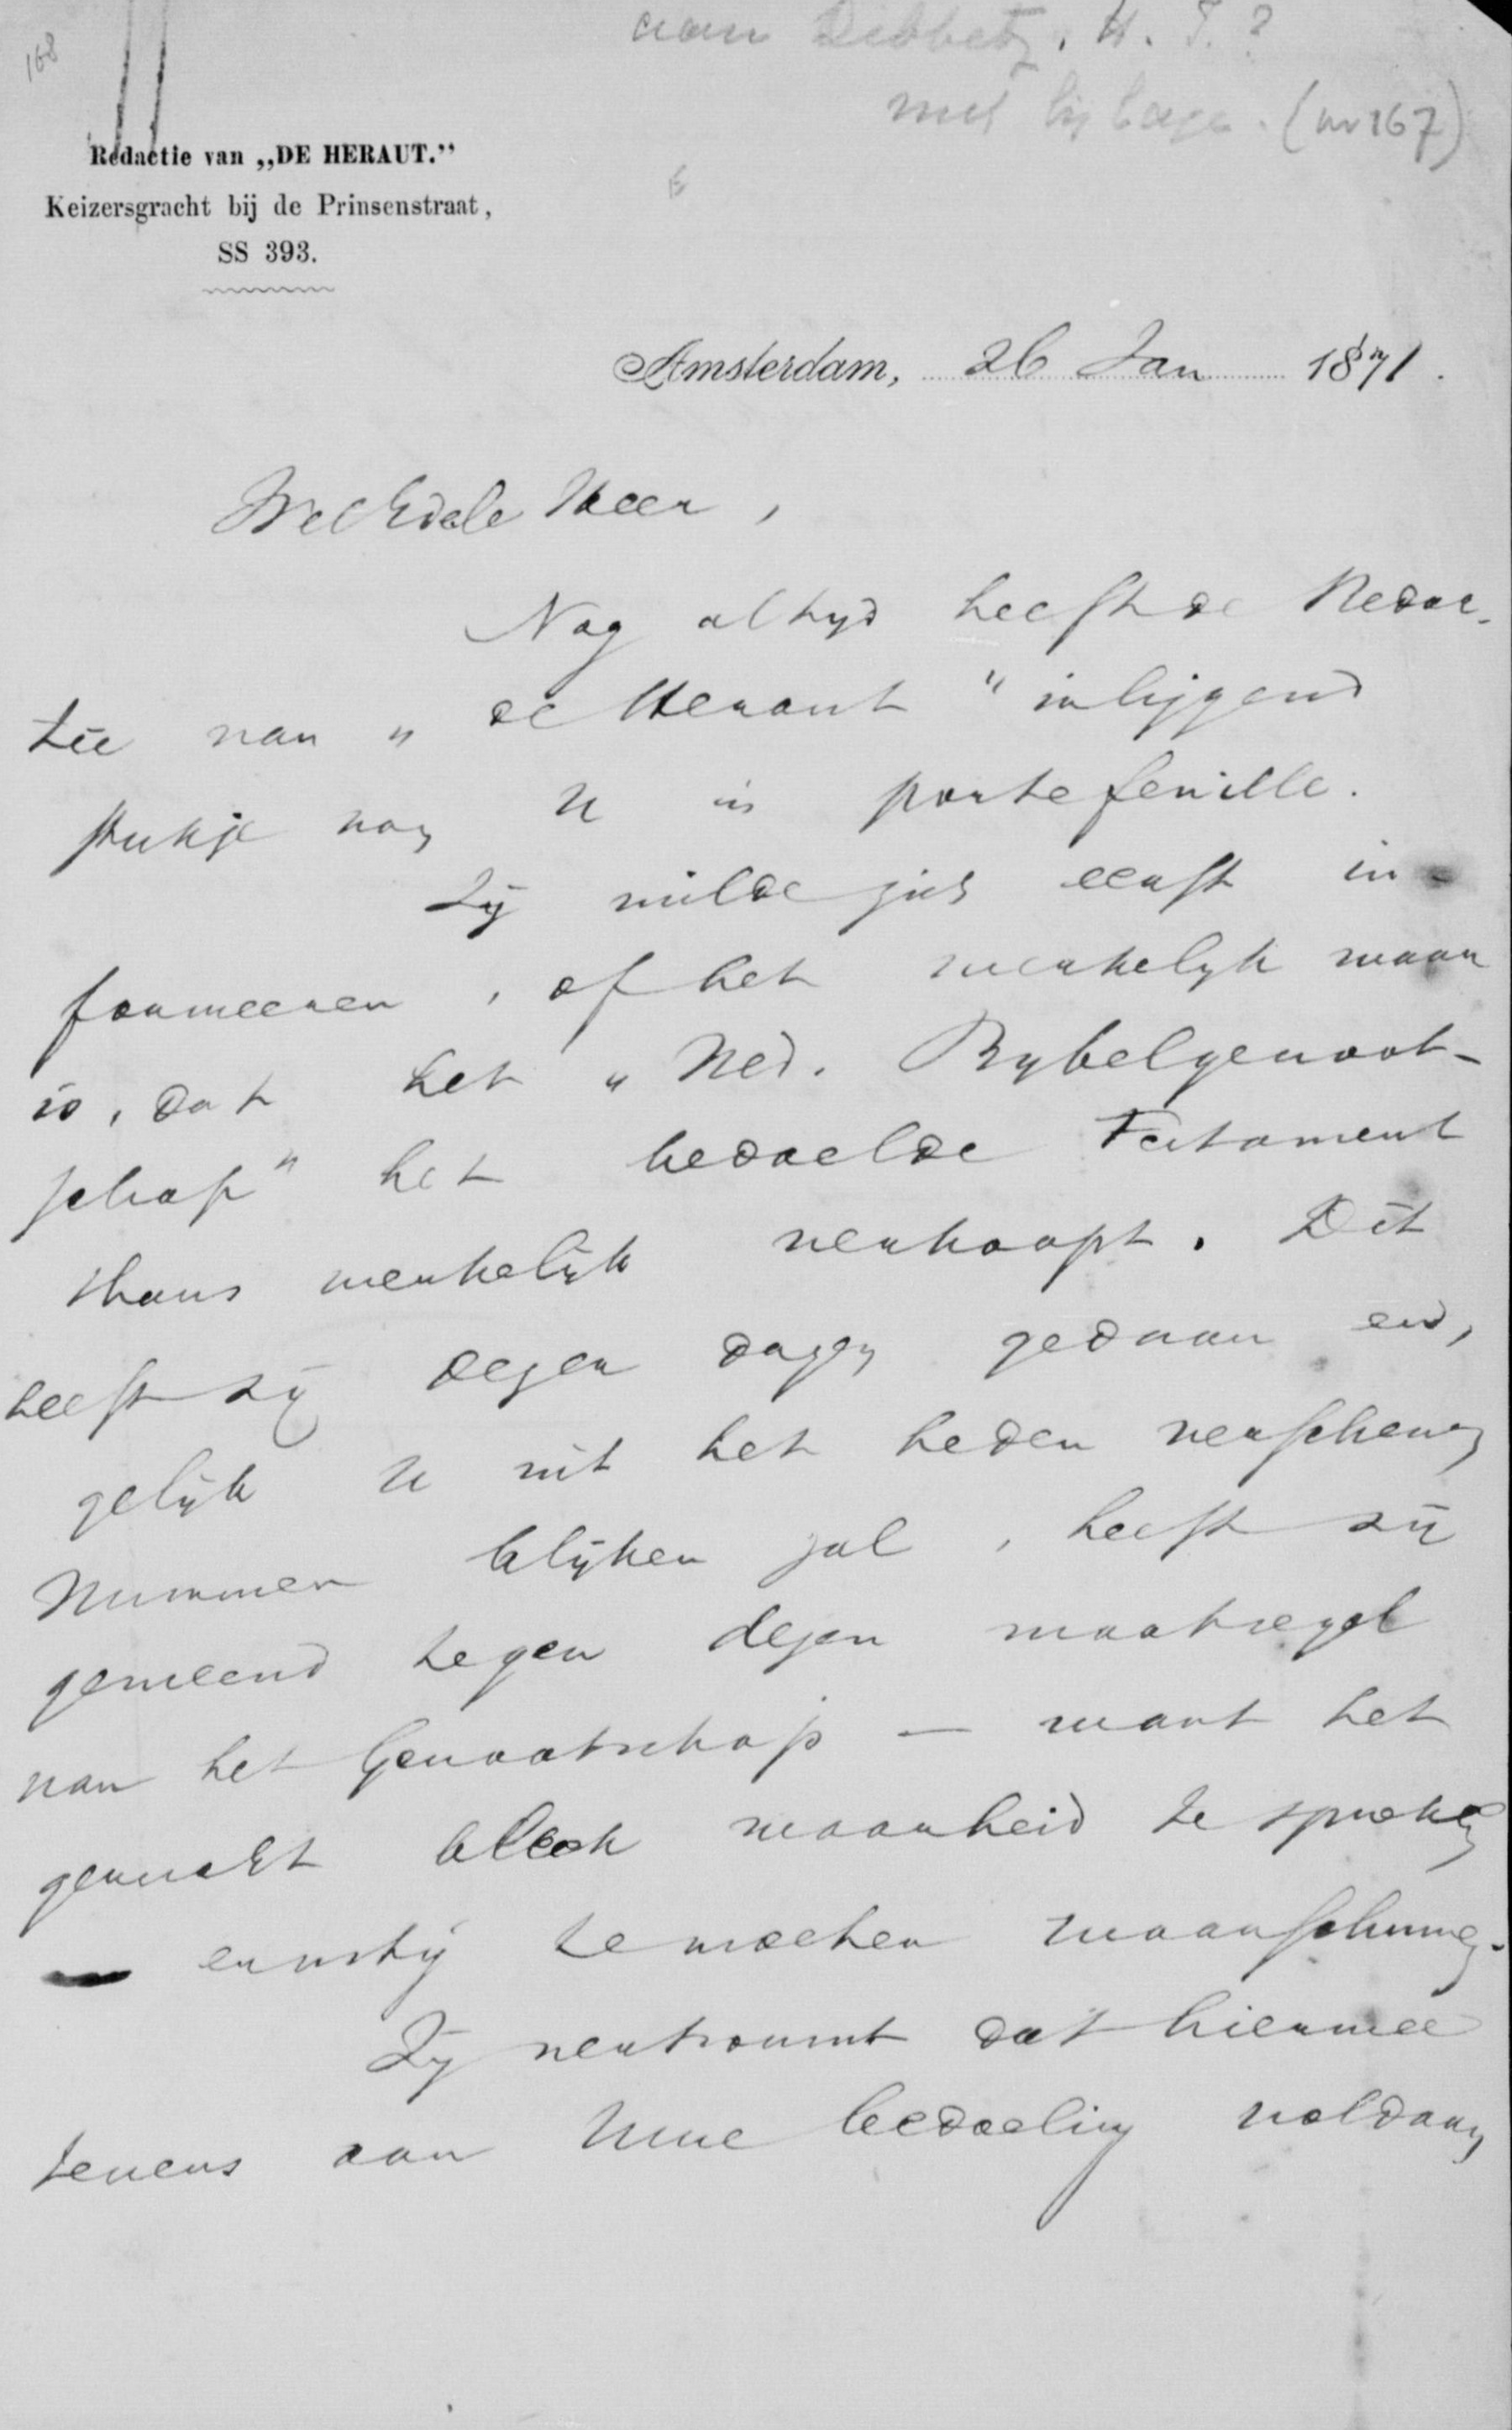 168
aan Dibbetz, H. J.?
met bijlage. (nr 167)
Redactie van „DE HERAUT.”
Keizersgracht bij de Prinsenstraat,
SS 393.
Amsterdam, 26 Jan 1871.
WelEdele Heer,
Nog altyd heeft de Redac-
tie van „de Heraut” inliggend
stukje van U in portefeuille.
Zij wilde zich eerst in-
formeeren, of het werkelyk waar
is, dat het „Ned. Bybelgenoot-
schap” het bedoelde Testament
thans werkelijk verkoopt. Dit
heeft zij dezer dagen gedaan en,
gelijk U uit het heden verschenen
Nummer blijken zal, heeft zij
gemeend tegen dezen maatregel
van het Genootschap — want het
gerucht bleek waarheid te spreken
— ernstig te moeten waarschuwen.
Zij vertrouwt dat hiermee
tevens aan Uwe bedoeling voldaan